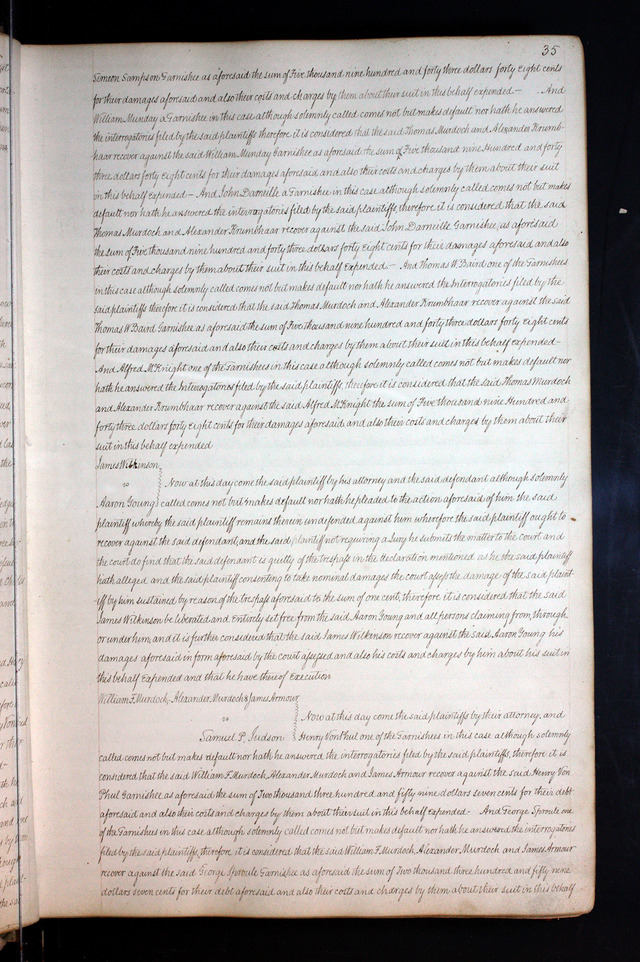 35
Simeon Sampson Garnishee as aforesaid the sum of Five thousand nine hundred and forty three dollars forty eight cents
for their damages aforesaid and also their costs and charges by them about their suit in this behalf expended — And
William Munday a Garnishee in this case although solemnly called comes not but makes default nor hath he answered
the interrogatories filed by the said plaintiffs therefore it is considered that the said Thomas Murdoch and Alexander Krumb-
haar recover against the said William Munday Garnishee as aforesaid the sum of Five thousand nine Hundred and forty
three dollars forty eight cents for their damages aforesaid and also their costs and charges by them about their suit
in this behalf expended — And John Darneille a Garnishee in this case although solemnly called comes not but makes
default nor hath he answered the interrogatories filed by the said plaintiffs, therefore it is considered that the said
Thomas Murdoch and Alexander Krumbhaar recover against the said John Darneille Garnishee, as aforesaid
the sum of Five thousand nine hundred and forty three dollars forty eight cents for their damages aforesaid and also
their costs and charges by them about their suit in this behalf expended. — And Thomas W. Baird one of the Garnishees
in this case although solemnly called comes not but makes default nor hath he answered the Interrogatories filed by the
said plaintiffs therefore it is considered that the said Thomas Murdoch and Alexander Krumbhaar recover against the said
Thomas W. Baird Garnishee as aforesaid the sum of Five thousand nine hundred and forty three dollars forty eight cents
for their damages aforesaid and also their costs and charges by them about their suit in this behalf expended —
And Alfred McKnight one of the Garnishees in this case although solemnly called comes not but makes default nor
hath he answered the Interrogatories filed by the said plaintiffs, therefore it is considered that the said Thomas Murdoch
and Alexander Krumbhaar recover against the said Alfred McKnight the sum of Five thousand nine Hundred and
forty three dollars forty eight cents for their damages aforesaid and also their costs and charges by them about their
suit in this behalf expended
James Wilkinson
vs Now at this day come the said plaintiff by his attorney and the said defendant although solemnly
Aaron Young called comes not but makes default nor hath he pleaded to the action aforesaid of him the said
plaintiff whereby the said plaintiff remains therein undefended against him wherefore the said plaintiff ought to
recover against the said defendant, and the said plaintiff not requiring a Jury he submits the matter to the court and
the court do find that the said defendant is guilty of the trespass in the declaration mentioned as he the said plaintiff
hath alleged and the said plaintiff consenting to take nominal damages the court assess the damage of the said plaint-
iff by him sustained by reason of the trespass aforesaid to the sum of one cent, therefore it is considered that the said
James Wilkinson be liberated and Entirely set free from the said Aaron Young and all persons claiming from, through
or under him, and it is further considered that the said James Wilkinson recover against the said Aaron Young his
damages aforesaid in form aforesaid by the court assessed and also his costs and charges by him about his suit in
this behalf expended and that he have thereof Execution
William F. Murdoch, Alexander Murdoch & James Armour
vs Now at this day come the said plaintiffs by their attorney, and
Samuel P. Judson Henry Von Phul one of the Garnishees in this case although solemnly
called comes not but makes default nor hath he answered the interrogatories filed by the said plaintiffs, therefore it is
considered that the said William F. Murdoch, Alexander Murdoch and James Armour recover against the said Henry Von
Phul Garnishee as aforesaid the sum of Two thousand three hundred and fifty nine dollars seven cents for their debt
aforesaid and also their costs and charges by them about their suit in this behalf expended — And George Sproule one
of the Garnishees in this case although solemnly called comes not but makes default nor hath he answered the interrogatories
filed by the said plaintiffs, therefore it is considered that the said William F. Murdoch, Alexander Murdoch and James Armour
recover against the said George Sproule Garnishee as aforesaid the sum of Two thousand three hundred and fifty nine
dollars seven cents for their debt aforesaid and also their costs and charges by them about their suit in this behalf